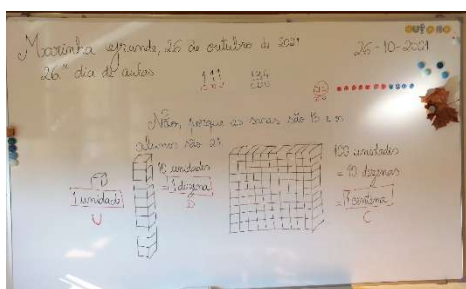 outono
Marinha Grande, 26 de outubro de 2021
26-10-2021
26º dia de aulas
111 134
Não, porque as
são 15 e os
alunos são 21
1 unidade
U
10 unidades
= 1 dezena
D
100 unidades
= 10 dezenas
= 1 centena
C